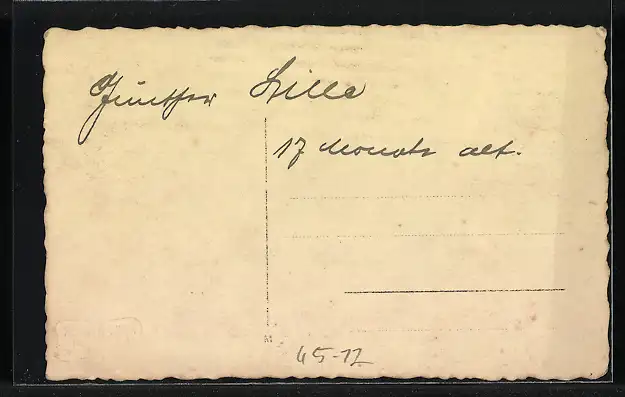 Günther Lille
17 Monate alt.
45-12